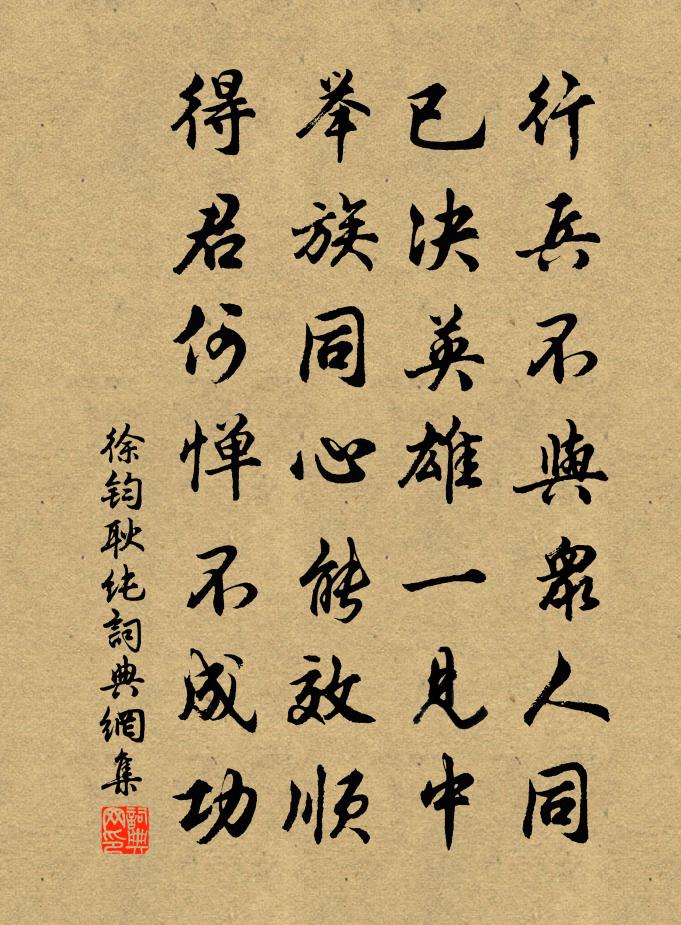 行兵不與眾人同
已决英雄一見中
举族同心能效順
得君何惮不成功
徐钧耿纯詞典網集
詞典网印